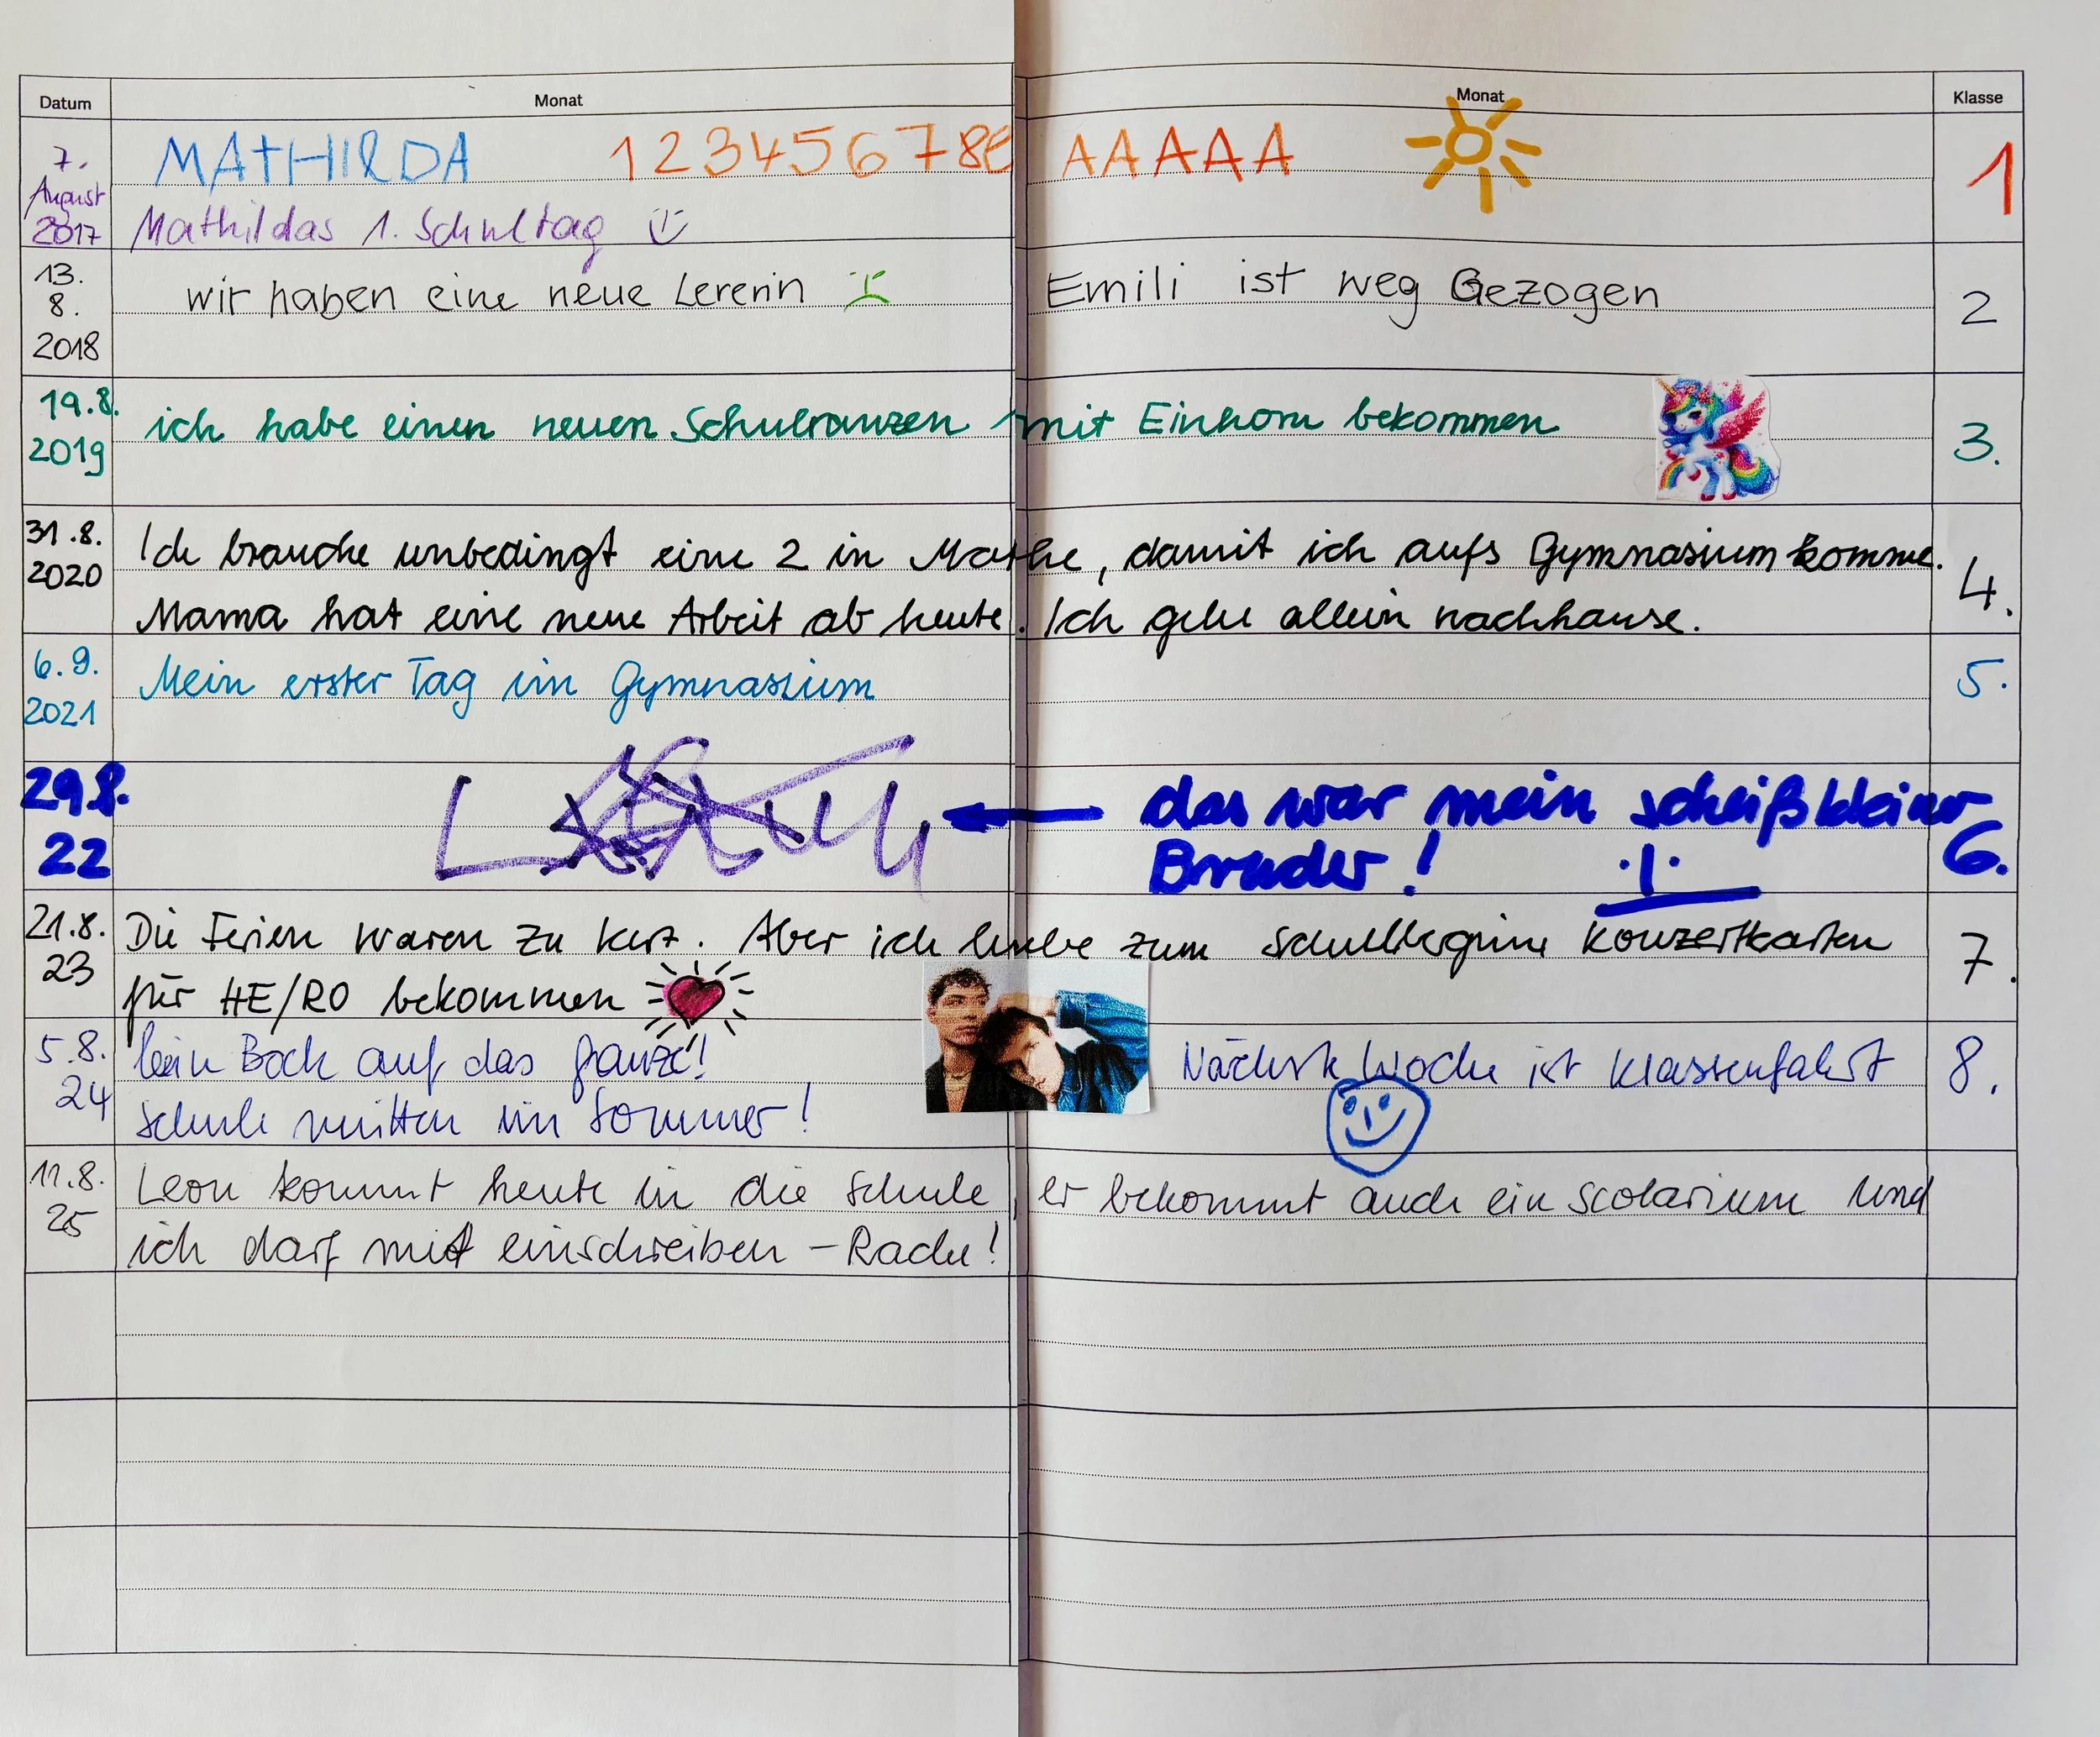 Datum Monat Monat Klasse
7. MATHILDA 12345678 AAAAA 1
August
2017 Mathildas 1. Schultag
13. wir haben eine neue Lererin Emili ist weg Gezogen 2
8.
2018
19.8. ich habe einen neuen Schulranzen mit Einhorn bekommen 3.
2019
31.8. Ich brauche unbedingt eine 2 in Mathe, damit ich aufs Gymnasium komme. 4.
2020 Mama hat eine neue Arbeit ab heute. Ich gehe allein nachhause.
6.9. Mein erster Tag im Gymnasium 5.
2021
29.8. das war mein scheißkleiner 6.
22 Bruder!
21.8. Die Ferien waren zu kurz. Aber ich habe zum Schulbeginn Konzertkarten 7.
23 für HE/RO bekommen
5.8. kein Bock auf das ganze! Nächste Woche ist Klassenfahrt 8.
24 Schule mitten im Sommer!
11.8. Leon kommt heute in die Schule, er bekommt auch ein Scolarium und
25 ich darf mit einschreiben - Rache!